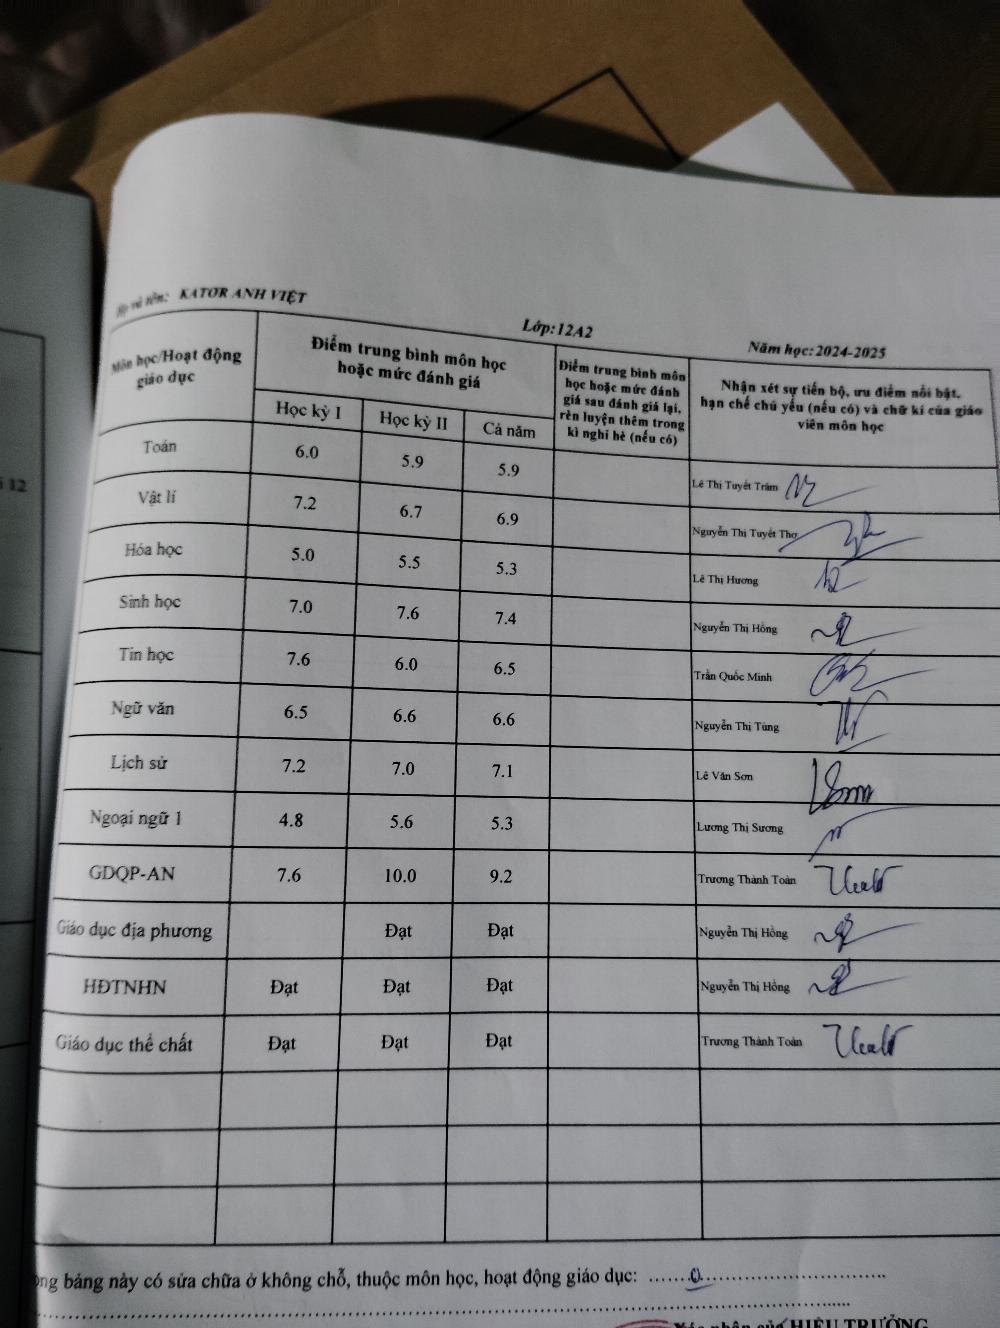 Họ và tên: KATƠR ANH VIỆT
Lớp: 12A2
Năm học: 2024-2025
Môn học/Hoạt động giáo dục
Điểm trung bình môn học hoặc mức đánh giá
Điểm trung bình môn học hoặc mức đánh giá sau đánh giá lại, rèn luyện thêm trong kì nghỉ hè (nếu có)
Nhận xét sự tiến bộ, ưu điểm nổi bật, hạn chế chủ yếu (nếu có) và chữ kí của giáo viên môn học
Học kỳ I Học kỳ II Cả năm
Toán 6.0 5.9 5.9 Lê Thị Tuyết Trâm
Vật lí 7.2 6.7 6.9 Nguyễn Thị Tuyết Thơ
Hóa học 5.0 5.5 5.3 Lê Thị Hương
Sinh học 7.0 7.6 7.4 Nguyễn Thị Hồng
Tin học 7.6 6.0 6.5 Trần Quốc Minh
Ngữ văn 6.5 6.6 6.6 Nguyễn Thị Tùng
Lịch sử 7.2 7.0 7.1 Lê Văn Sơn
Ngoại ngữ 1 4.8 5.6 5.3 Lương Thị Sương
GDQP-AN 7.6 10.0 9.2 Trương Thành Toàn
Giáo dục địa phương Đạt Đạt Nguyễn Thị Hồng
HĐTNHN Đạt Đạt Đạt Nguyễn Thị Hồng
Giáo dục thể chất Đạt Đạt Đạt Trương Thành Toàn
bảng này có sửa chữa ở không chỗ, thuộc môn học, hoạt động giáo dục: ......0......
của HIỆU TRƯỞNG
12